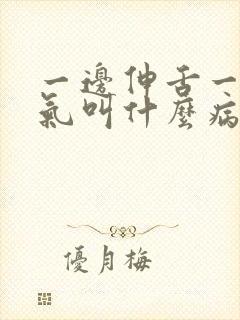 一邊伸舌一
氣叫什麼病
優月梅